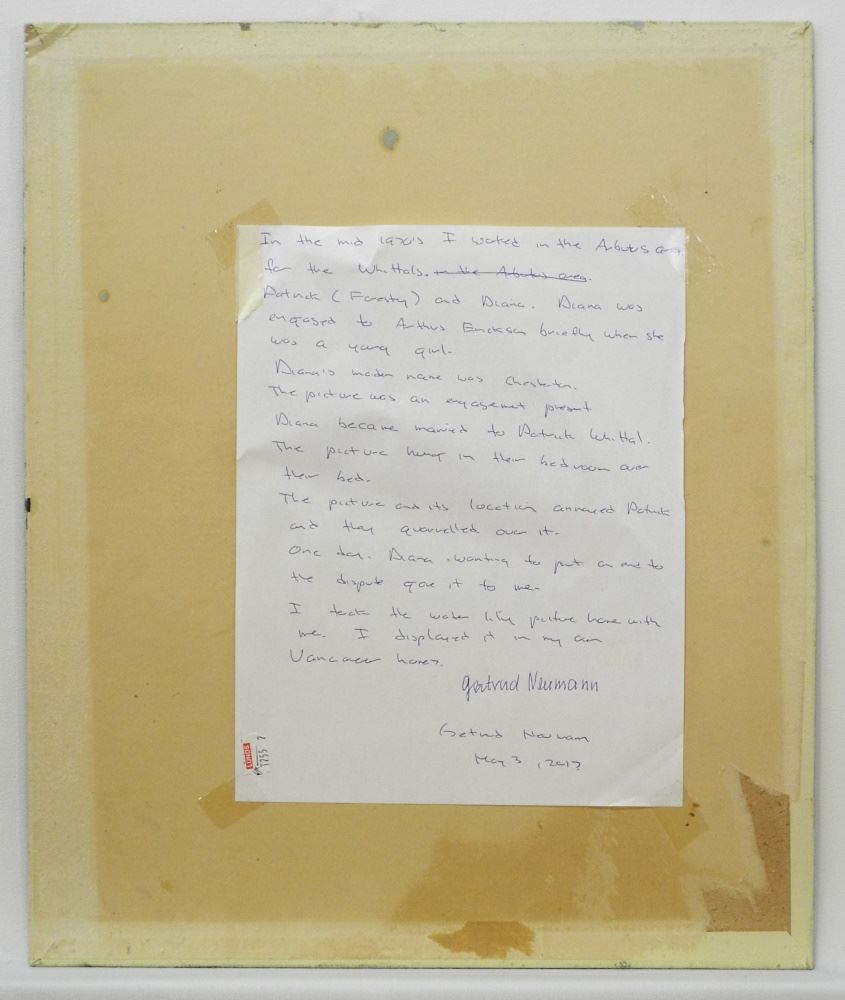 In the mid 1970's I worked in the Arbutus area
for the Whittals. in the Arbutus area.
Patrick ( Forestry ) and Diana. Diana was
engaged to Arthur Erickson briefly when she
was a young girl.
Diana's maiden name was
The picture was an engagement present
Diana became married to Patrick Whittal.
The picture hung in their bedroom over
their bed.
The picture and its location annoyed Patrick
and they quarrelled over it.
One day. Diana wanting to put an end to
the dispute gave it to me.
I took the water lily picture home with
me. I displayed it in my own
Vancouver homes.
Gertrud Neumann
Gertrud
May 3,
LUNDS